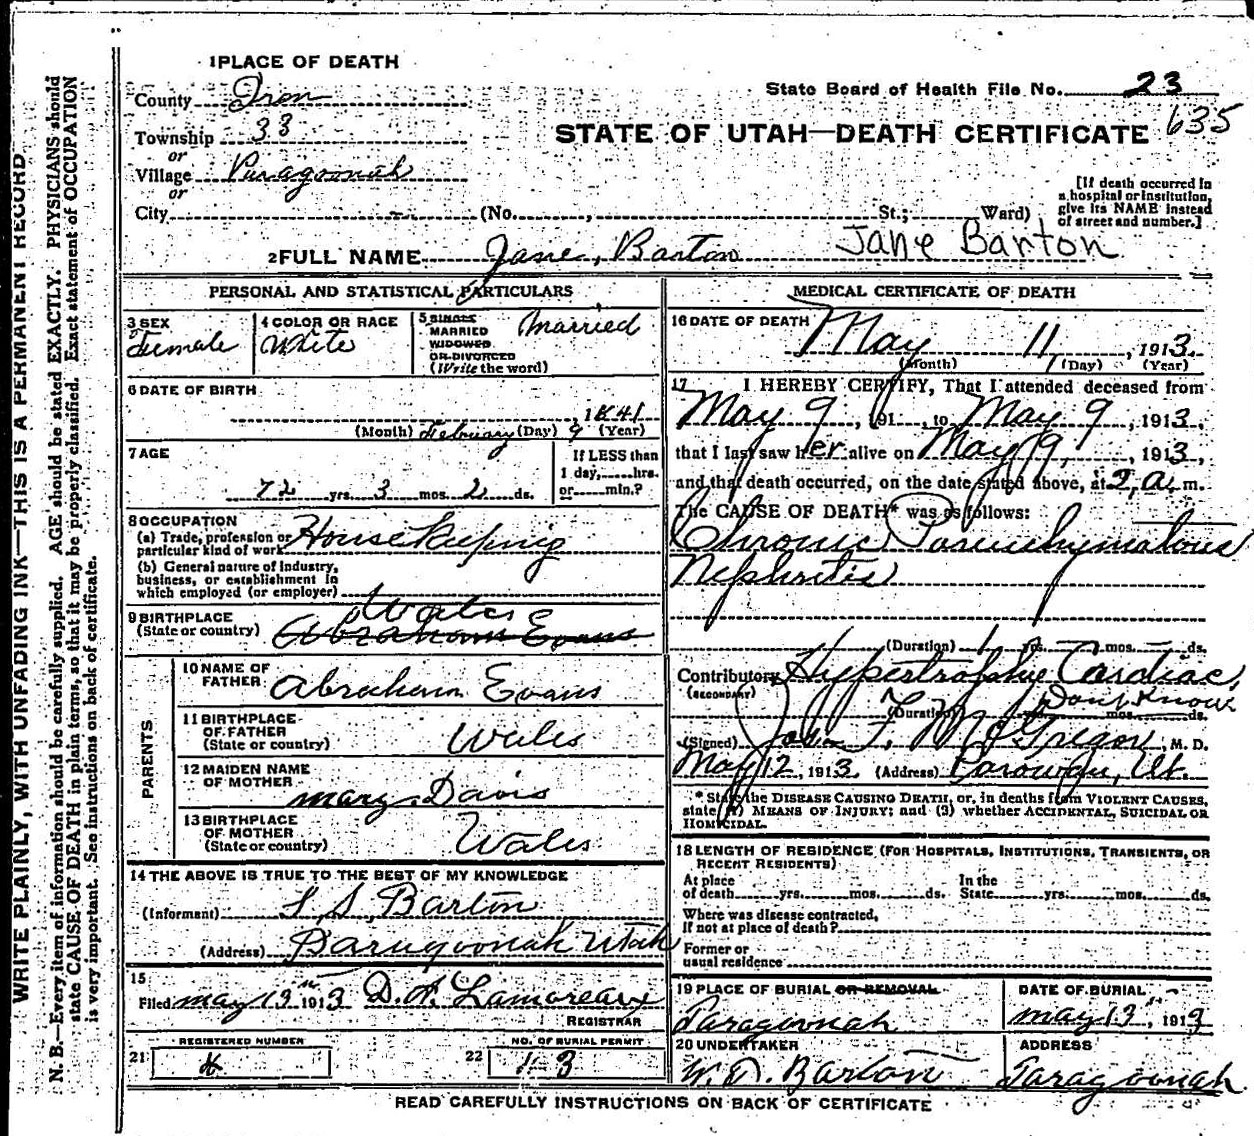 1 PLACE OF DEATH
County Iron
Township 33
or
Village Paragoonah
or
City (No. , St.; Ward)
State Board of Health File No. 23
635
STATE OF UTAH—DEATH CERTIFICATE
[If death occurred in
a hospital or institution,
give its NAME instead
of street and number.]
2 FULL NAME Jane, Barton Jane Barton
PERSONAL AND STATISTICAL PARTICULARS
3 SEX
Female
4 COLOR OR RACE
White
5 SINGLE
MARRIED
WIDOWED
OR DIVORCED
(Write the word)
Married
6 DATE OF BIRTH
, 1841
(Month) February (Day) 9 (Year)
7 AGE
72 yrs. 3 mos. 2 ds.
If LESS than
1 day, hrs.
or min.?
8 OCCUPATION
(a) Trade, profession or
particular kind of work House Keeping
(b) General nature of industry,
business, or establishment in
which employed (or employer)
9 BIRTHPLACE
(State or country)
Wales
Abraham Evans
PARENTS
10 NAME OF
FATHER Abraham Evans
11 BIRTHPLACE
OF FATHER
(State or country) Wales
12 MAIDEN NAME
OF MOTHER Mary Davis
13 BIRTHPLACE
OF MOTHER
(State or country) Wales
14 THE ABOVE IS TRUE TO THE BEST OF MY KNOWLEDGE
(Informant) S. S. Barton
(Address) Paragoonah Utah
15
Filed May 13 1913 D. A. Lamoreaux
REGISTRAR
REGISTERED NUMBER
21
NO. OF BURIAL PERMIT
22 13
MEDICAL CERTIFICATE OF DEATH
16 DATE OF DEATH
May 11, 1913.
(Month) (Day) (Year)
17 I HEREBY CERTIFY, That I attended deceased from
May 9, 191 , to May 9, 1913,
that I last saw her alive on May 9, 1913,
and that death occurred, on the date stated above, at 2, a, m.
The CAUSE OF DEATH* was as follows:
Chronic Parenchymatous
Nephritis
(Duration) 1 yrs. mos. ds.
Contributory Hypertrophie Cardiac,
(SECONDARY)
(Duration) Dont Know mos. ds.
(Signed) John F. McGregor, M. D.
May 12, 1913. (Address) Parowan, Ut.
* State the DISEASE CAUSING DEATH, or, in deaths from VIOLENT CAUSES,
state (1) MEANS OF INJURY; and (2) whether ACCIDENTAL, SUICIDAL OR
HOMICIDAL.
18 LENGTH OF RESIDENCE (FOR HOSPITALS, INSTITUTIONS, TRANSIENTS, OR
RECENT RESIDENTS)
At place
of death yrs. mos. ds.
In the
State yrs. mos. ds.
Where was disease contracted,
if not at place of death?
Former or
usual residence
19 PLACE OF BURIAL OR REMOVAL
Paragoonah
DATE OF BURIAL
May 13, 1913
20 UNDERTAKER
W. D. Barton
ADDRESS
Paragoonah
READ CAREFULLY INSTRUCTIONS ON BACK OF CERTIFICATE
WRITE PLAINLY, WITH UNFADING INK—THIS IS A PERMANENT RECORD
N. B.—Every item of information should be carefully supplied. AGE should be stated EXACTLY. PHYSICIANS should
state CAUSE OF DEATH in plain terms, so that it may be properly classified. Exact statement of OCCUPATION
is very important. See instructions on back of certificate.